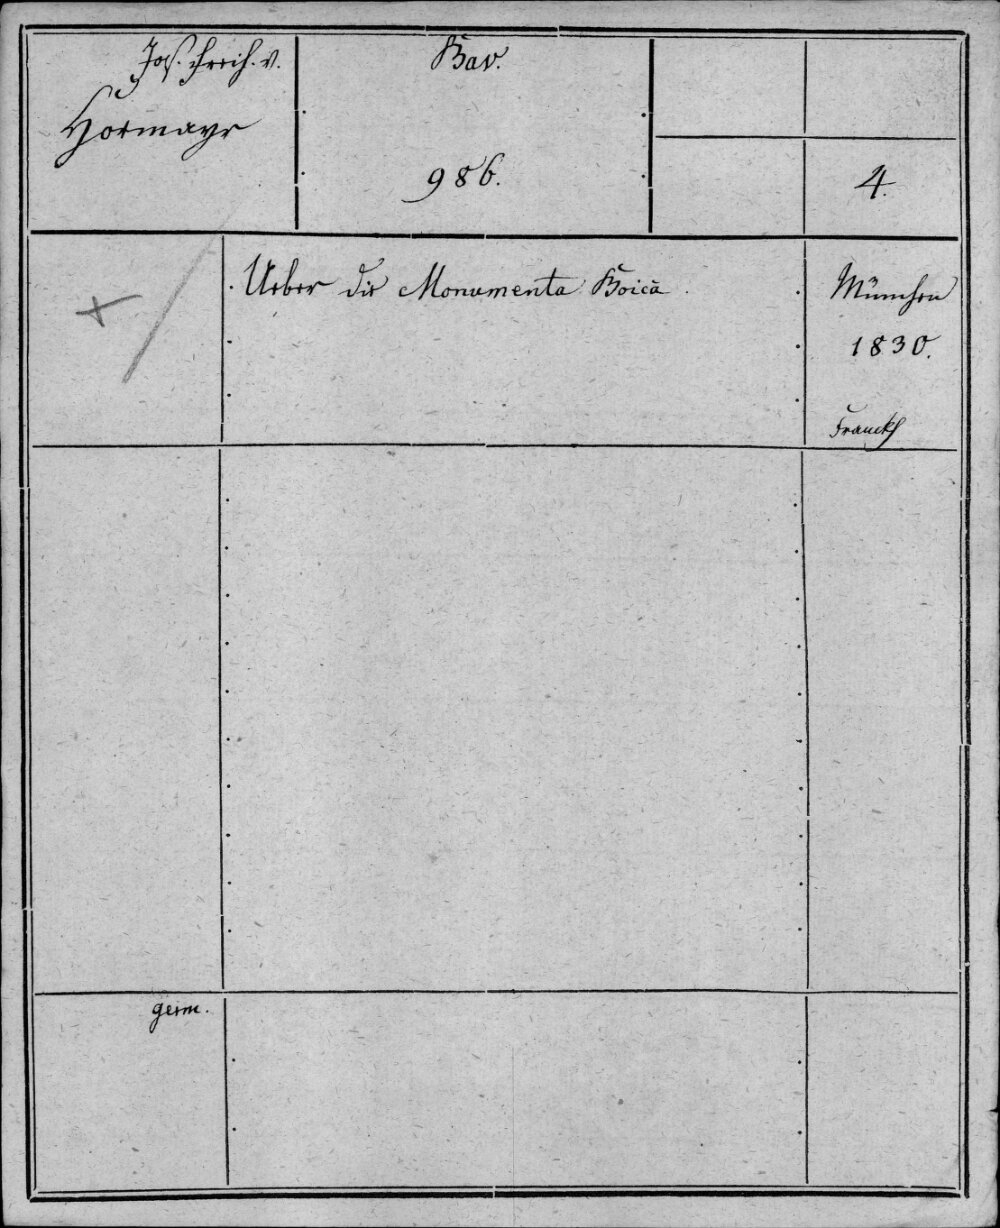 Jos. Freih. v.
Hormayr
Bav.
986.
4.
Ueber die Monumenta Boica
München
1830.
Franckh
germ.